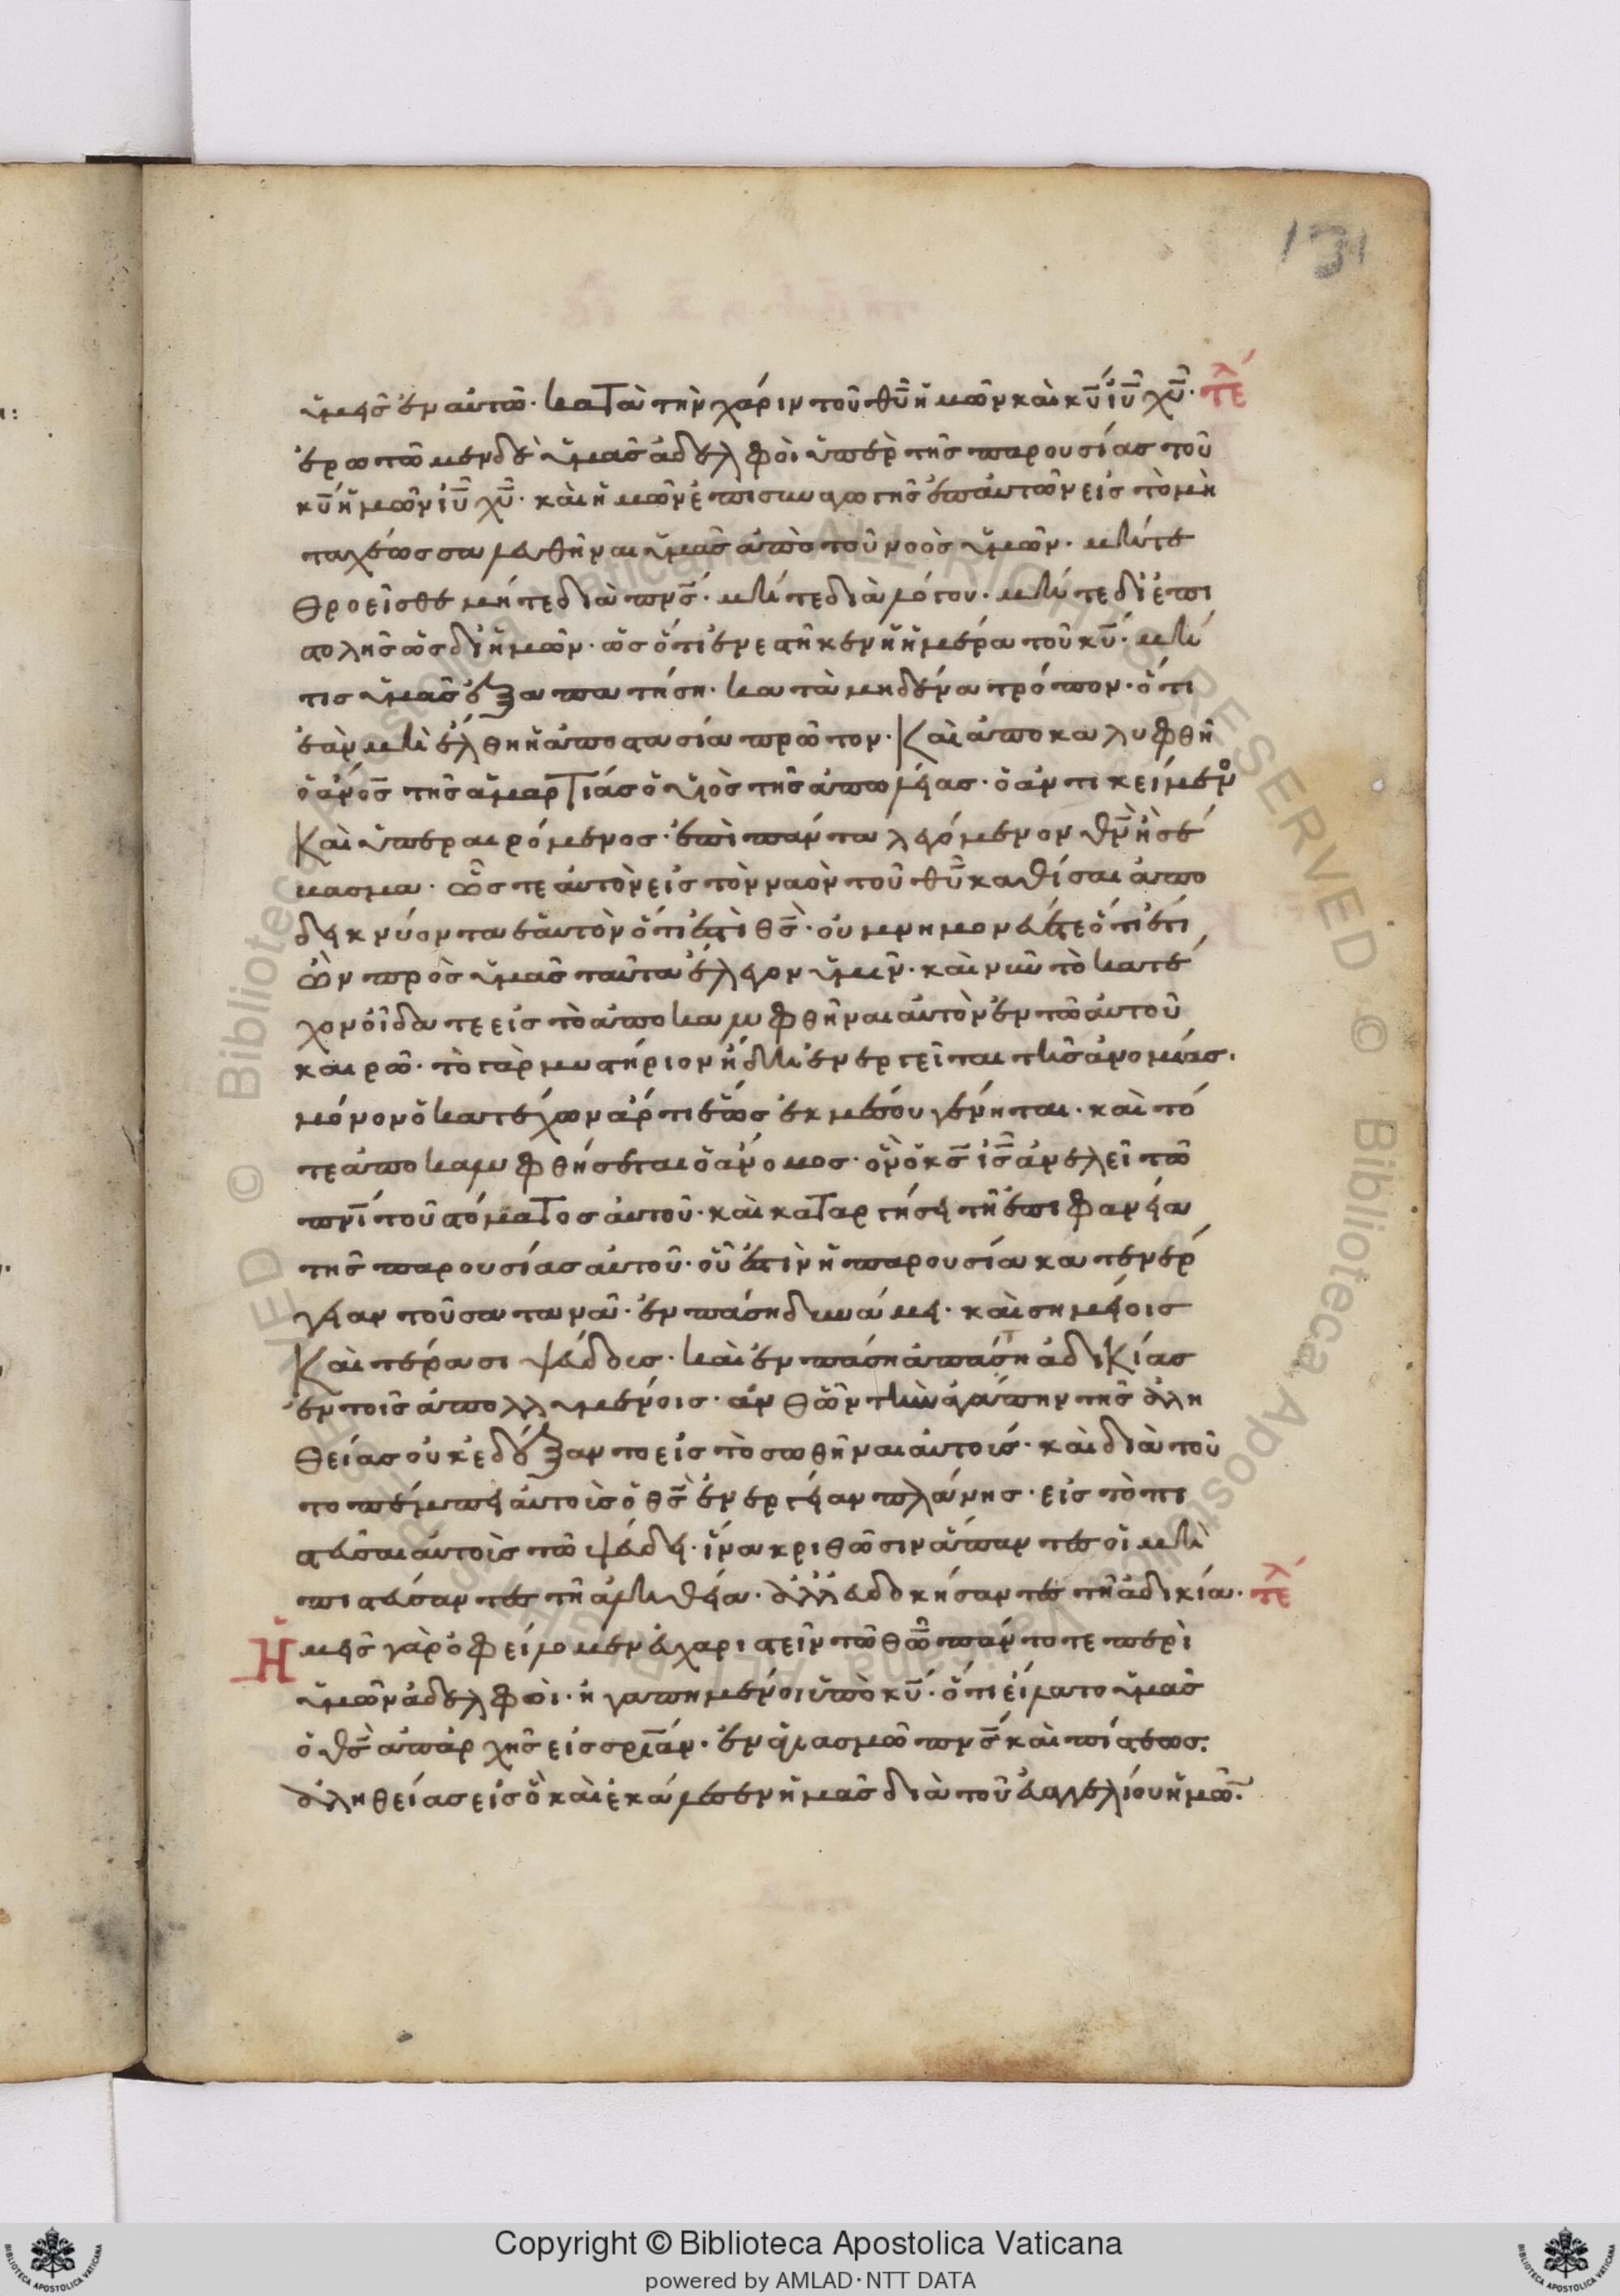 131
ὑμεῖς ἐν αὐτῶ· κατὰ τὴν χάριν τοῦ θ̅υ̅ ἡμῶν καὶ κ̅υ̅ ἰ̅υ̅ χ̅υ̅· τελ
ἐρωτῶμεν δὲ ὑμᾶς ἀδελφοὶ ὑπὲρ τῆς παρουσίας τοῦ
κ̅υ̅ ἡμῶν ἰ̅υ̅ χ̅υ̅· καὶ ἡμῶν ἐπισυναγωγῆς ἐπ αὐτὸν εἰς τὸ μὴ
ταχέως σαλευθῆναι ὑμᾶς ἀπὸ τοῦ νοὸς ὑμῶν· μήτε
θροεῖσθε μήτε διὰ π̅ν̅ς̅· μήτε διὰ λόγου· μήτε δι ἐπι
στολῆς ὡς δι ἡμῶν· ὡς ὅτι ἐνέστηκεν ἡ ἡμέρα τοῦ κ̅υ̅· μή
τις ὑμᾶς ἐξαπατήση· κατὰ μηδένα τρόπον· ὅτι
ἐὰν μὴ ἔλθη ἡ ἀποστασία πρῶτον· Καὶ ἀποκαλυφθῆ
ὁ ἄ̅ν̅ο̅ς̅ τῆς ἁμαρτίας ὁ υἱὸς τῆς ἀπωλείας· ὁ ἀντικείμενο
Καὶ ὑπεραιρόμενος· ἐπὶ πάντα λεγόμενον θ̅ν̅ ἢ σέ
βασμα· ὥστε αὐτὸν εἰς τὸν ναὸν τοῦ θ̅υ̅ καθίσαι ἀπο
δεικνύοντα ἑαυτὸν ὅτι ἐστὶ θ̅ς̅· οὐ μνημονεύετε ὅτι ἔτι
ὢν πρὸς ὑμᾶς ταῦτα ἔλεγον ὑμῖν· καὶ νῦν τὸ κατέ
χον οἴδατε εἰς τὸ ἀποκαλυφθῆναι αὐτὸν ἐν τῶ αὐτοῦ
καιρῶ· τὸ γὰρ μυστήριον ἤδη ἐνεργεῖται τῆς ἀνομίας·
μόνον ὁ κατέχων ἄρτι ἕως ἐκ μέσου γένηται· καὶ τό
τε ἀποκαλυφθήσεται ὁ ἄνομος· ὃν ὁ κ̅ς̅ ἰ̅ς̅ ἀνελεῖ τῶ
π̅ν̅ι̅ τοῦ στόματος αὐτοῦ· καὶ καταργήσει τῆ ἐπιφανεία
τῆς παρουσίας αὐτοῦ· οὗ ἐστὶν ἡ παρουσία κατ ἐνέρ
γειαν τοῦ σατανᾶ· ἐν πάση δυνάμει· καὶ σημείοις
Καὶ τέρασι ψεύδους· καὶ ἐν πάση ἀπάτη ἀδικίας
ἐν τοῖς ἀπολλυμένοις· ἀνθ ὧν τὴν ἀγάπην τῆς ἀλη
θείας οὐκ ἐδέξαντο εἰς τὸ σωθῆναι αὐτούς· καὶ διὰ τοῦ
το πέμπει αὐτοῖς ὁ θ̅ς̅ ἐνέργειαν πλάνης· εἰς τὸ πι
στεῦσαι αὐτοὺς τῶ ψεύδει· ἵνα κριθῶσιν ἅπαντες οἱ μὴ
πιστεύσαντες τῆ ἀληθεία· ἀλλ εὐδοκήσαντες τῆ ἀδικία· τελ
Ἡμεῖς γὰρ ὀφείλομεν εὐχαριστεῖν τῶ θ̅ω̅ πάντοτε περὶ
ὑμῶν ἀδελφοὶ· ἠγαπημένοι ὑπὸ κ̅υ̅· ὅτι εἵλατο ὑμᾶς
ὁ θ̅ς̅ ἀπ ἀρχῆς εἰς σ̅ρ̅ι̅α̅ν̅· ἐν ἁγιασμῶ π̅ν̅ς̅ καὶ πίστεως·
ἀληθείας εἰς ὃ καὶ ἐκάλεσεν ἡμᾶς διὰ τοῦ εὐαγγελίου ἡμῶ̅·
Copyright © Biblioteca Apostolica Vaticana
powered by AMLAD·NTT DATA